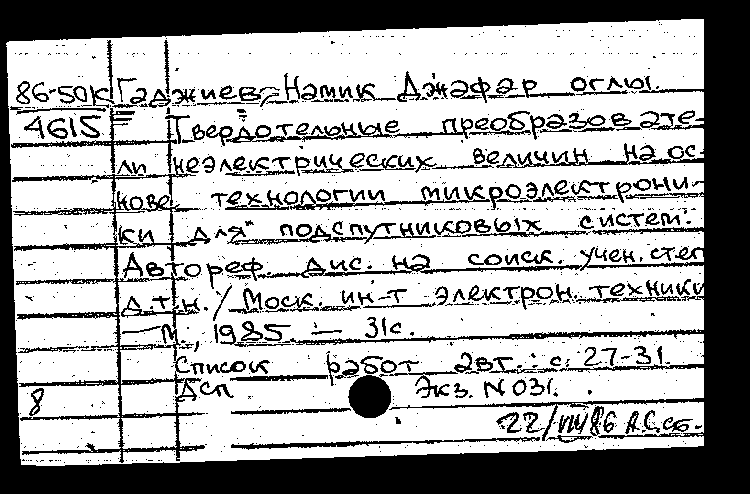 86-50к Гаджиев, Намик Джафар оглы.
4615 Твердотельные преобразовате-
ли неэлектрических величин на ос-
нове технологии микроэлектрони-
ки для подспутниковых систем:
Автореф. дис. на соиск. учен. степ
д.т.н. / Моск. ин-т электрон. техники
— М., 1985. — 31с.
Список работ авт.: с. 27-31.
ДСП Экз. N 031.
8
22/VIII 86